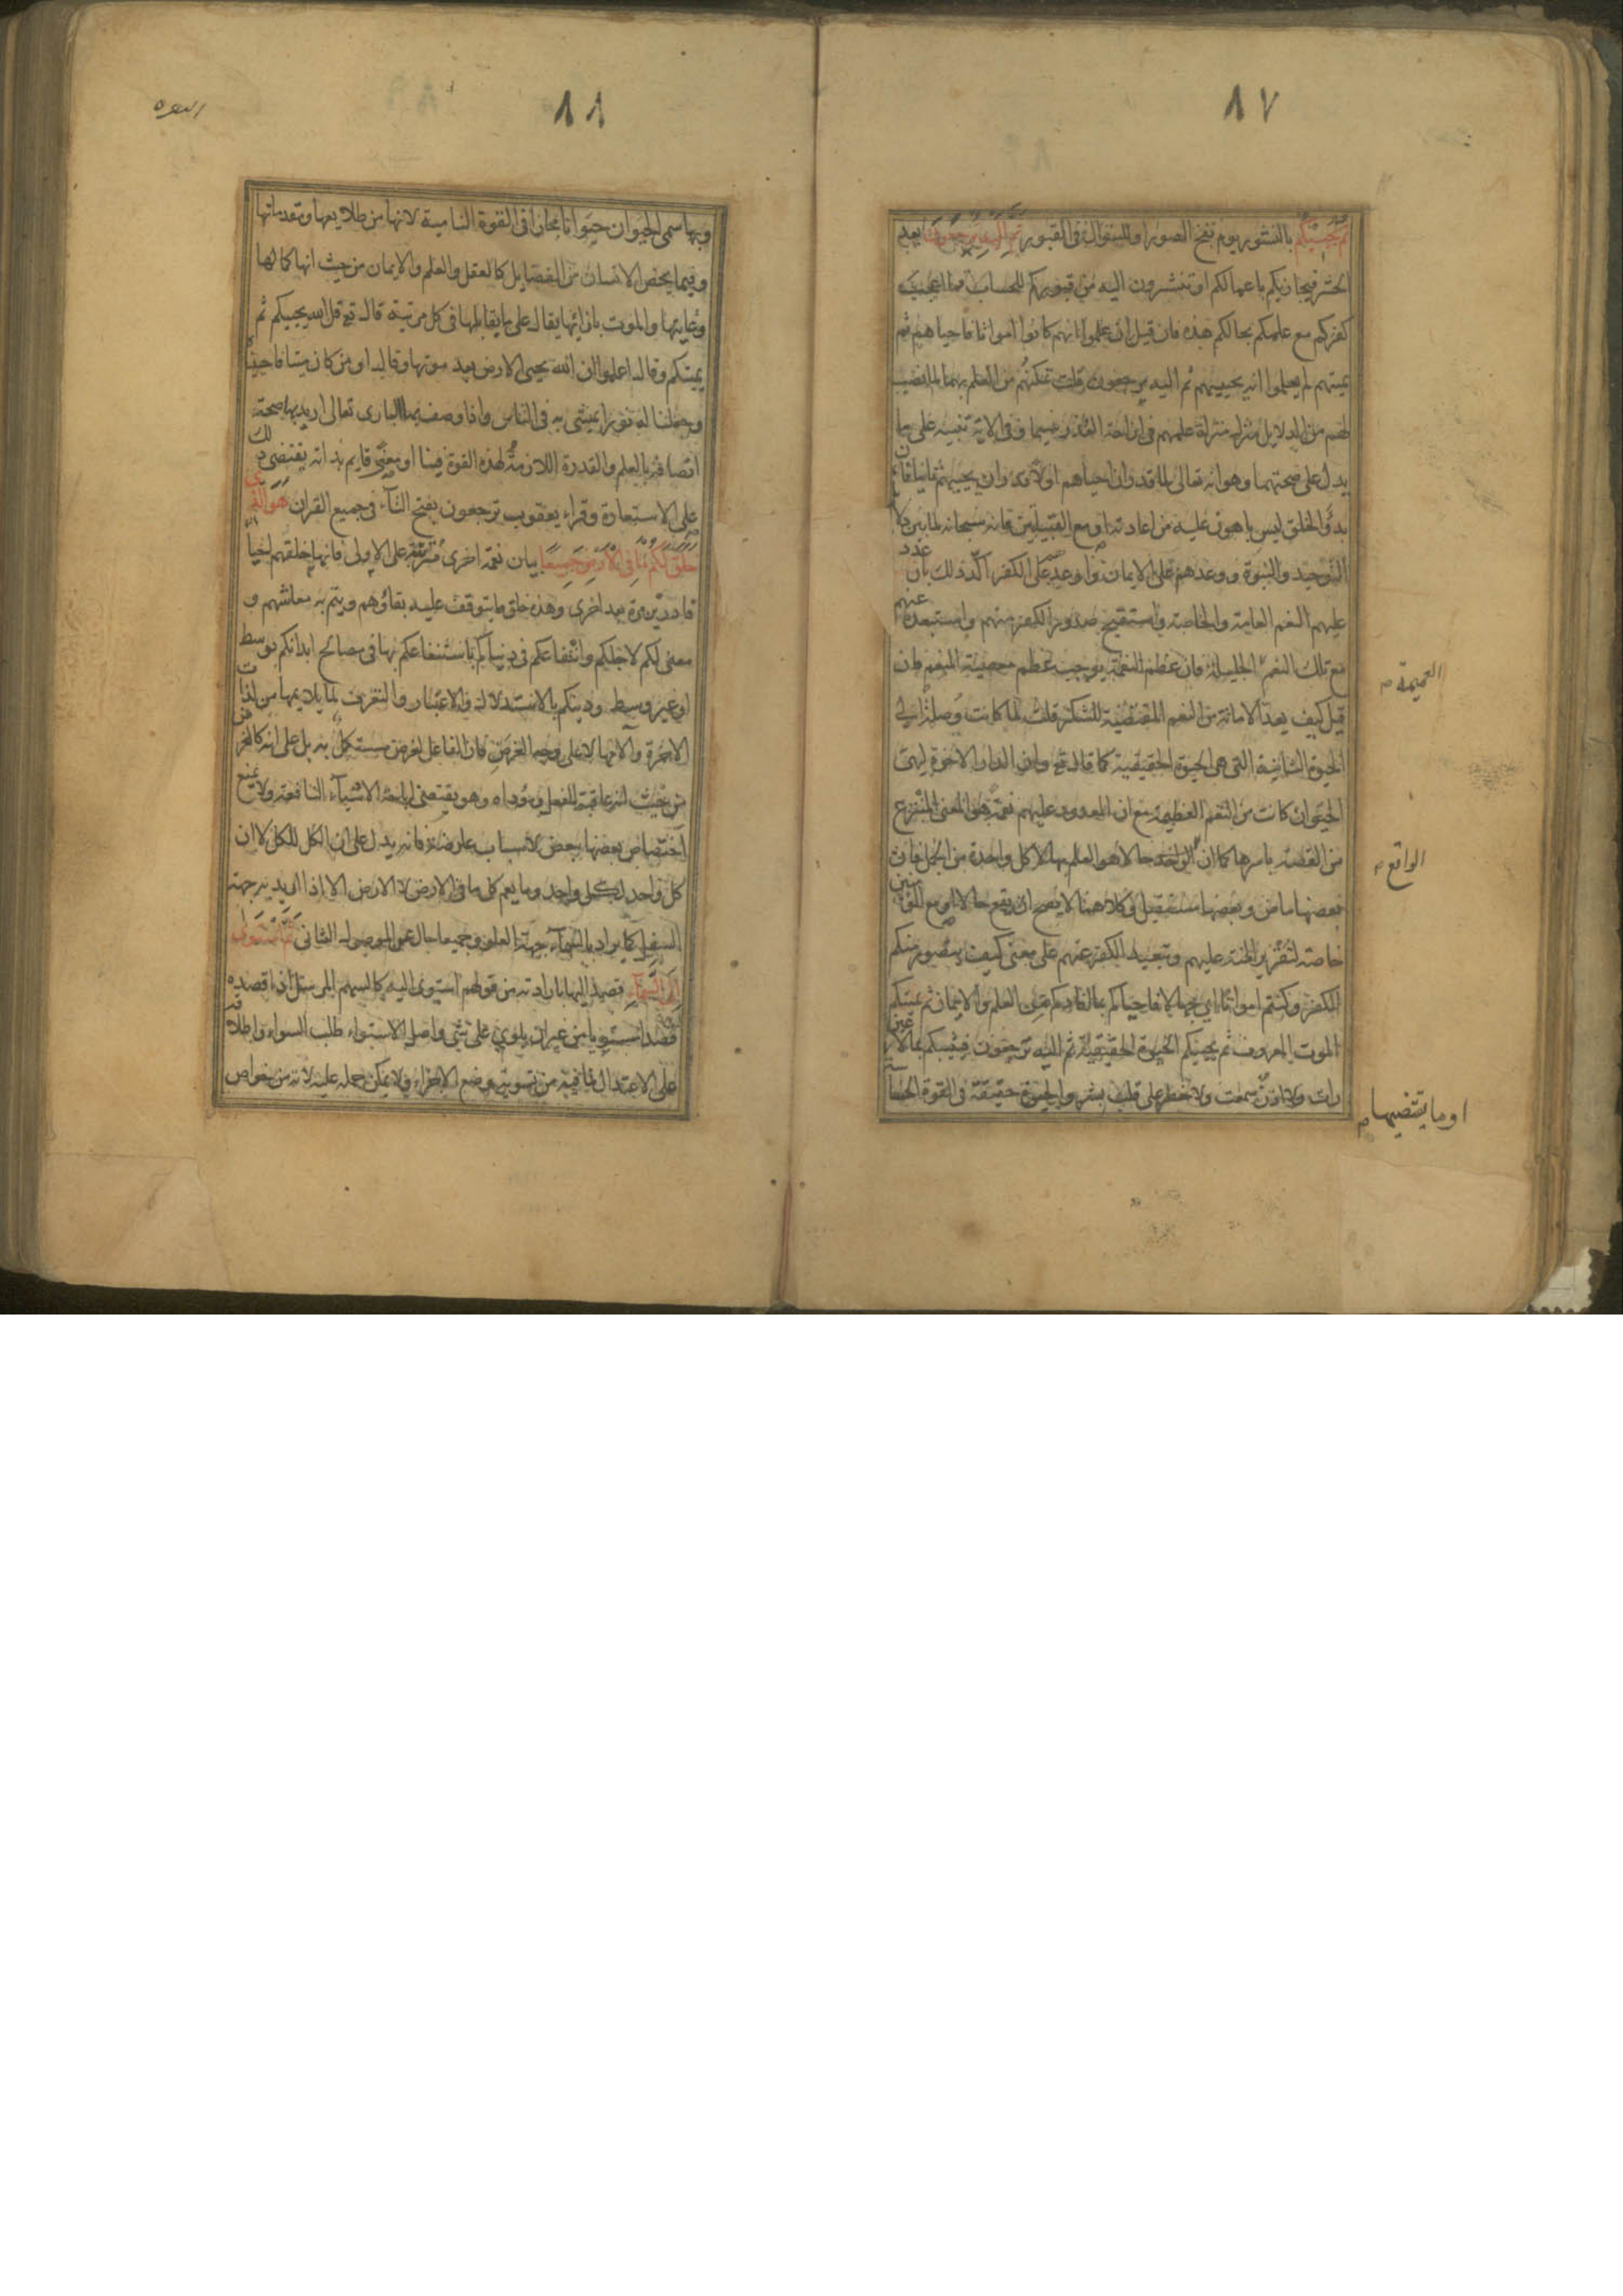 ٨٧
ثم يحييكم بالنشور يوم نفخ الصور او للسؤال فى القبور ثم اليه ترجعون بعد
الحشر فيجازيكم باعمالكم او تنشرون اليه من قبوركم للحساب فما اعجب
كفركم مع علمكم بحالكم هذه فان قيل ان علموا انهم كانوا امواتا فاحياهم ثم
يميتهم لم يعلموا انه يحييهم ثم اليه يرجعون قلت تمكنهم من العلم بهما لما نصب
لهم من الدلايل منزل منزلة علمهم فى ازاحة العذر سيما وفى الاية تنبيه على ما
يدل على صحتهما وهو انه تعالى لما قدر ان احياهم اولا قدر ان يحييهم ثانيا فان
بدؤ الخلق ليس باهون عليه من اعادته او مع القبيلين فانه سبحانه لما بين دلائل
التوحيد والنبوة ووعدهم على الايمان واوعدهم على الكفر اكد ذلك بان عدد
عليهم النعم العامة والخاصة واستقبح صدور الكفر منهم واستبعده عنهم
مع تلك النعم الجليلة فان عظم النعمة يوجب عظم معصية المنعم فان
قيل كيف يعد الاماتة من النعم المقتضية للشكر قلت لما كانت وصلة الى
الحيوة الثانية التى هى الحيوة الحقيقية كما قال تع وان الدار الاخرة لهى
الحيوان كانت من النعم العظيمة مع ان المعدود عليهم نعمة هو المعنى المنتزع
من القصة باسرها كما ان الواقع حالا هو العلم بها لا كل واحدة من الجمل فان
بعضها ماض وبعضها مستقبل وكلاهما لا يصح ان يقع حالا او مع المؤمنين
خاصة لتقرير المنة عليهم وتبعيد الكفر عنهم على معنى كيف يتصور منكم
الكفر وكنتم امواتا اى جهالا فاحياكم بما افادكم من العلم والايمان ثم يميتكم
الموت المعروف ثم يحييكم الحيوة الحقيقية ثم اليه ترجعون فيثيبكم بما لا عين
رات ولا اذن سمعت ولا خطر على قلب بشر والحيوة حقيقة فى القوة الحساسة
العميمة
الواقع
او ما يقتضيها
٨٨
البقره
وبها سمى الحيوان حيوانا مجازا فى القوة النامية لانها من طلايعها ومقدماتها
وفيما يخص الانسان من الفضايل كالعقل والعلم والايمان من حيث انها كمالها
وغايتها والموت بازائها يقال على ما يقابلها فى كل مرتبة قال تع قل الله يحييكم ثم
يميتكم وقال اعلموا ان الله يحيى الارض بعد موتها وقال او من كان ميتا فاحييناه
وجعلنا له نورا يمشى به فى الناس واذا وصف بها البارى تعالى اريد بها صحة
اتصافه بالعلم والقدرة اللازمة لهذه القوة فينا او معنى قايم بذاته يقتضى ذلك
على الاستعارة وقراء يعقوب ترجعون بفتح التآء فى جميع القران هو الذى
خلق لكم ما فى الارض جميعا بيان نعمة اخرى مرتبة على الاولى فانها خلقهم احياء
قادرين مرة بعد اخرى وهذه خلق ما يتوقف عليه بقاؤهم ويتم به معاشهم و
معنى لكم لاجلكم وانتفاعكم فى دنياكم باستنفاعكم بها فى مصالح ابدانكم بوسط
او غير وسط ودينكم بالاستدلال والاعتبار والتعرف لما يلايمها من لذات
الاخرة وآلامها لا على وجه الغرض فان الفاعل لغرض مستكمل به بل على انه كالغرض
من حيث انه عاقبة الفعل ومؤداه وهو يقتضى اباحة الاشيآء النافعة ولا يمنع
اختصاص بعضها ببعض لاسباب عارضة فانه يدل على ان الكل للكل لا ان
كل واحد لكل واحد وما يعم كل ما فى الارض لا الارض الا اذا اريد به جهة
السفل كما يراد بالسمآء جهة العلو وجميعا حال عن الموصول الثانى ثم استوى
الى السمآء قصد اليها بارادته من قولهم استوى اليه كالسهم المرسل اذا قصده
قصدا مستويا من غير ان يلوى على شى واصل الاستواء طلب السواء واطلاقه
على الاعتدال لما فيه من تسوية وضع الاجزاء ولا يمكن حمله عليه لانه من خواص